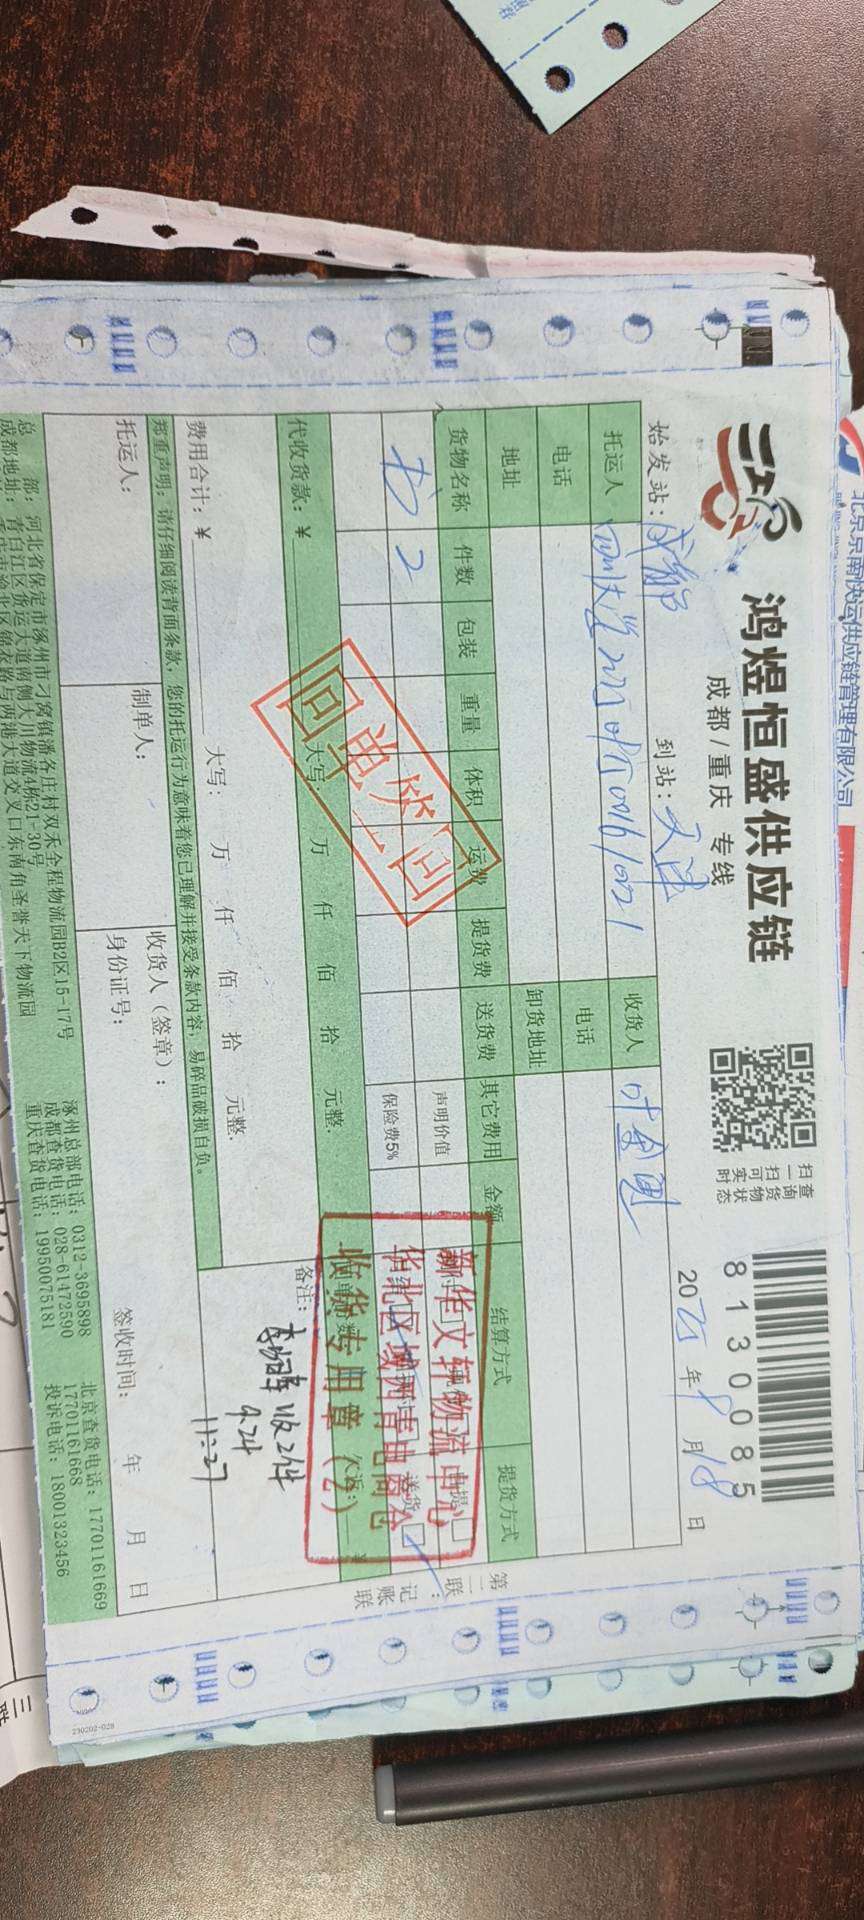 北京京南快运供应链管理有限公司
鸿煜恒盛供应链
成都/重庆 专线
扫一扫可实时
查询货物状态
8130085
始发站:成都
到站:天津
2025年8月18日
托运人
收货人 叶金团
电话
电话
地址
卸货地址
结算方式
提货方式
货物名称 件数 包装 重量 体积 运费 提货费 送货费 其它费用 金额
书 2
声明价值
保险费5%
送货
代收货款:¥
大写: 万 仟 佰 拾 元整.
费用合计:¥
大写: 万 仟 佰 拾 元整.
备注:
收2件
9.24
11:27
回单签回
新华文轩物流中心
华北区域
收货专用章(2)
郑重声明:请仔细阅读背面条款,您的托运行为意味着您已理解并接受条款内容,易碎品破损自负。
托运人:
制单人:
收货人(签章):
身份证号:
签收时间: 年 月 日
总 部:河北省保定市涿州市刁窝镇潘各庄村双禾全程物流园B2区15-17号
成都地址:青白江区货运大道南侧大川物流A栋21-30号
涿州总部电话:0312-3695898
成都查货电话:028-61472590
重庆查货电话:19950075181
北京查货电话:17701161669
17701161668
投诉电话:18001323456
第二联:记账联
230202-028